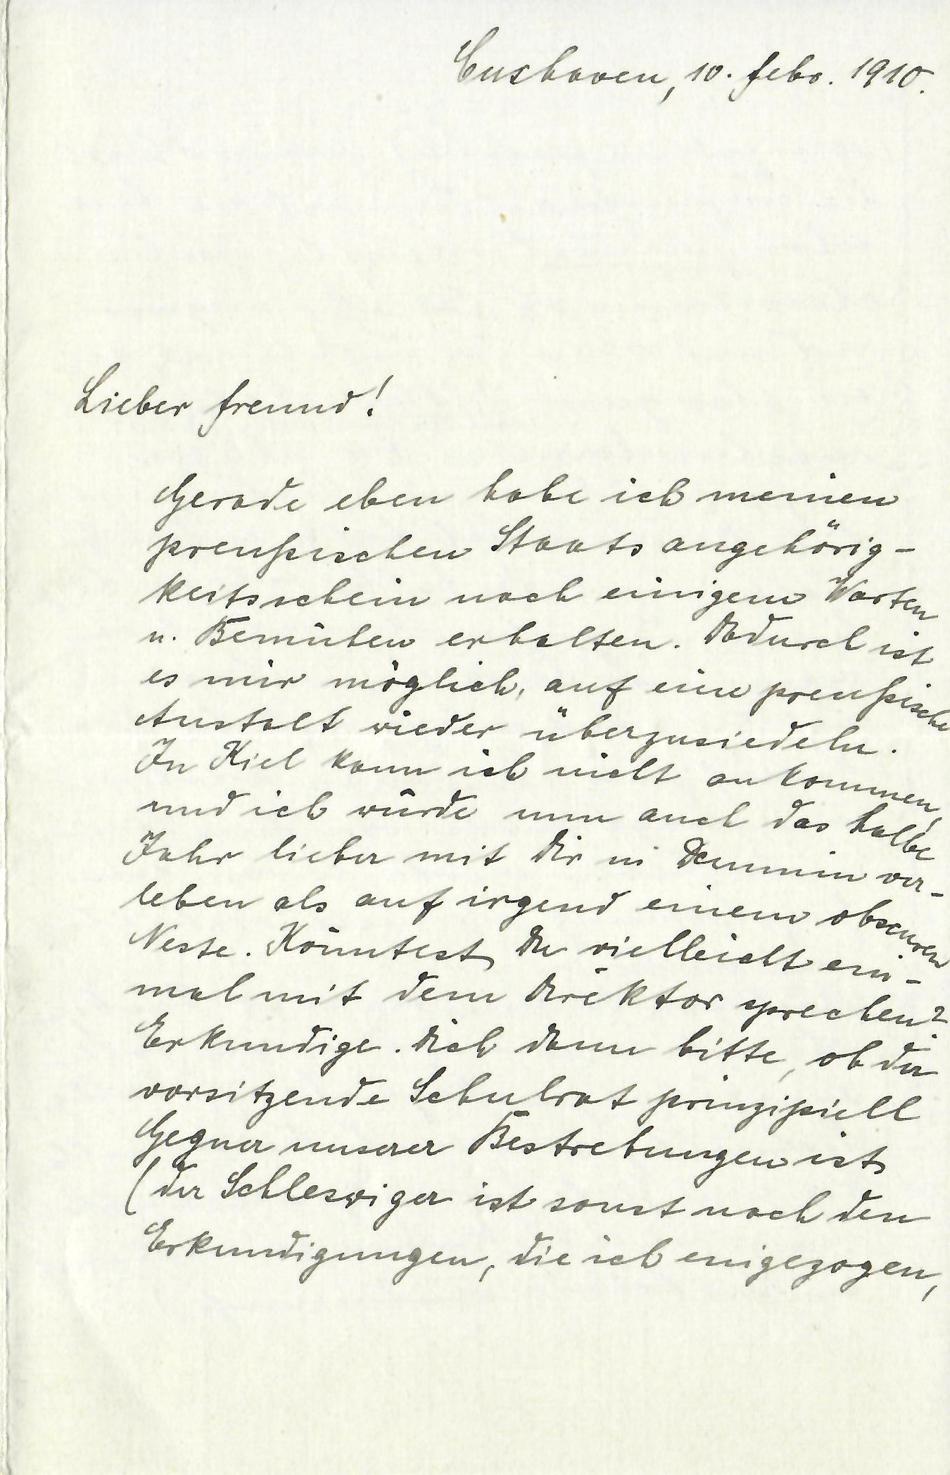 Cuxhaven, 10. Febr. 1910.
Lieber Freund!
Gerade eben habe ich meinen
preußischen Staatsangehörig-
keitsschein nach einigem Warten
u. Bemühen erhalten. Dadurch ist
es mir möglich, auf eine preußische
Anstalt wieder überzusiedeln.
In Kiel kann ich nicht ankommen,
und ich würde nun auch das halbe
Jahr lieber mit Dir in Demmin ver-
leben als auf irgend einem obscuren
Neste. Könntest Du vielleicht ein-
mal mit dem Direktor sprechen?
Erkundige Dich dann bitte, ob der
vorsitzende Schulrat prinzipiell
Gegner unserer Bestrebungen ist
(der Schleswiger ist sonst nach den
Erkundigungen, die ich eingezogen,